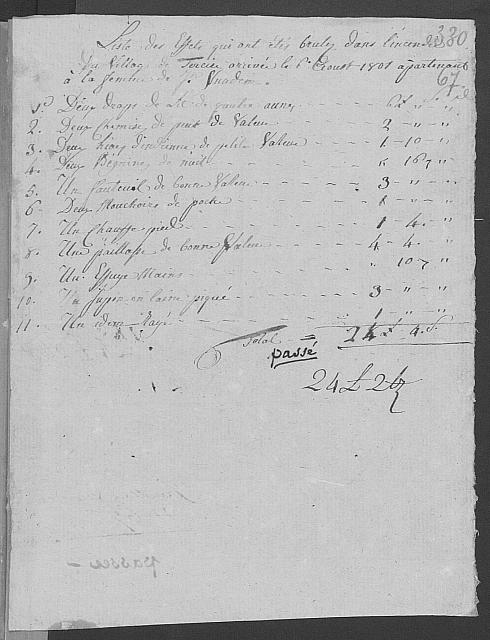 330
67
Liste des Effets qui ont étés brulez dans l'incendie
du Village de arrivé le 6e Aoust 1801 apartenant
à la femme de
1° Deux draps de Lit de quatre aunes - - - 6 £ " "
2. Deux Chemise de peut de Valeur - - - 2 " "
3. Deux d'indienne de petite Valeur - - - 1 - 10 - "
4. Deux Beguines de nuit - - - " 16 "
5. Un fauteuil de bonne Valeur - - - 3 - " "
6. Deux Mouchoirs de poche - - - 1 " "
7. Un Chauffe pied - - - 1 - 4. "
8. Une paillasse de bonne Valeur - - - 4 - 4. "
9. Un Essuye Mains - - - " 10
10. Un Jupon en laine piqué - - - 3 - " "
11. Un idem Rayé - - - 1 " "
Total = 24 £ 4 S.
passé
24 £ 2